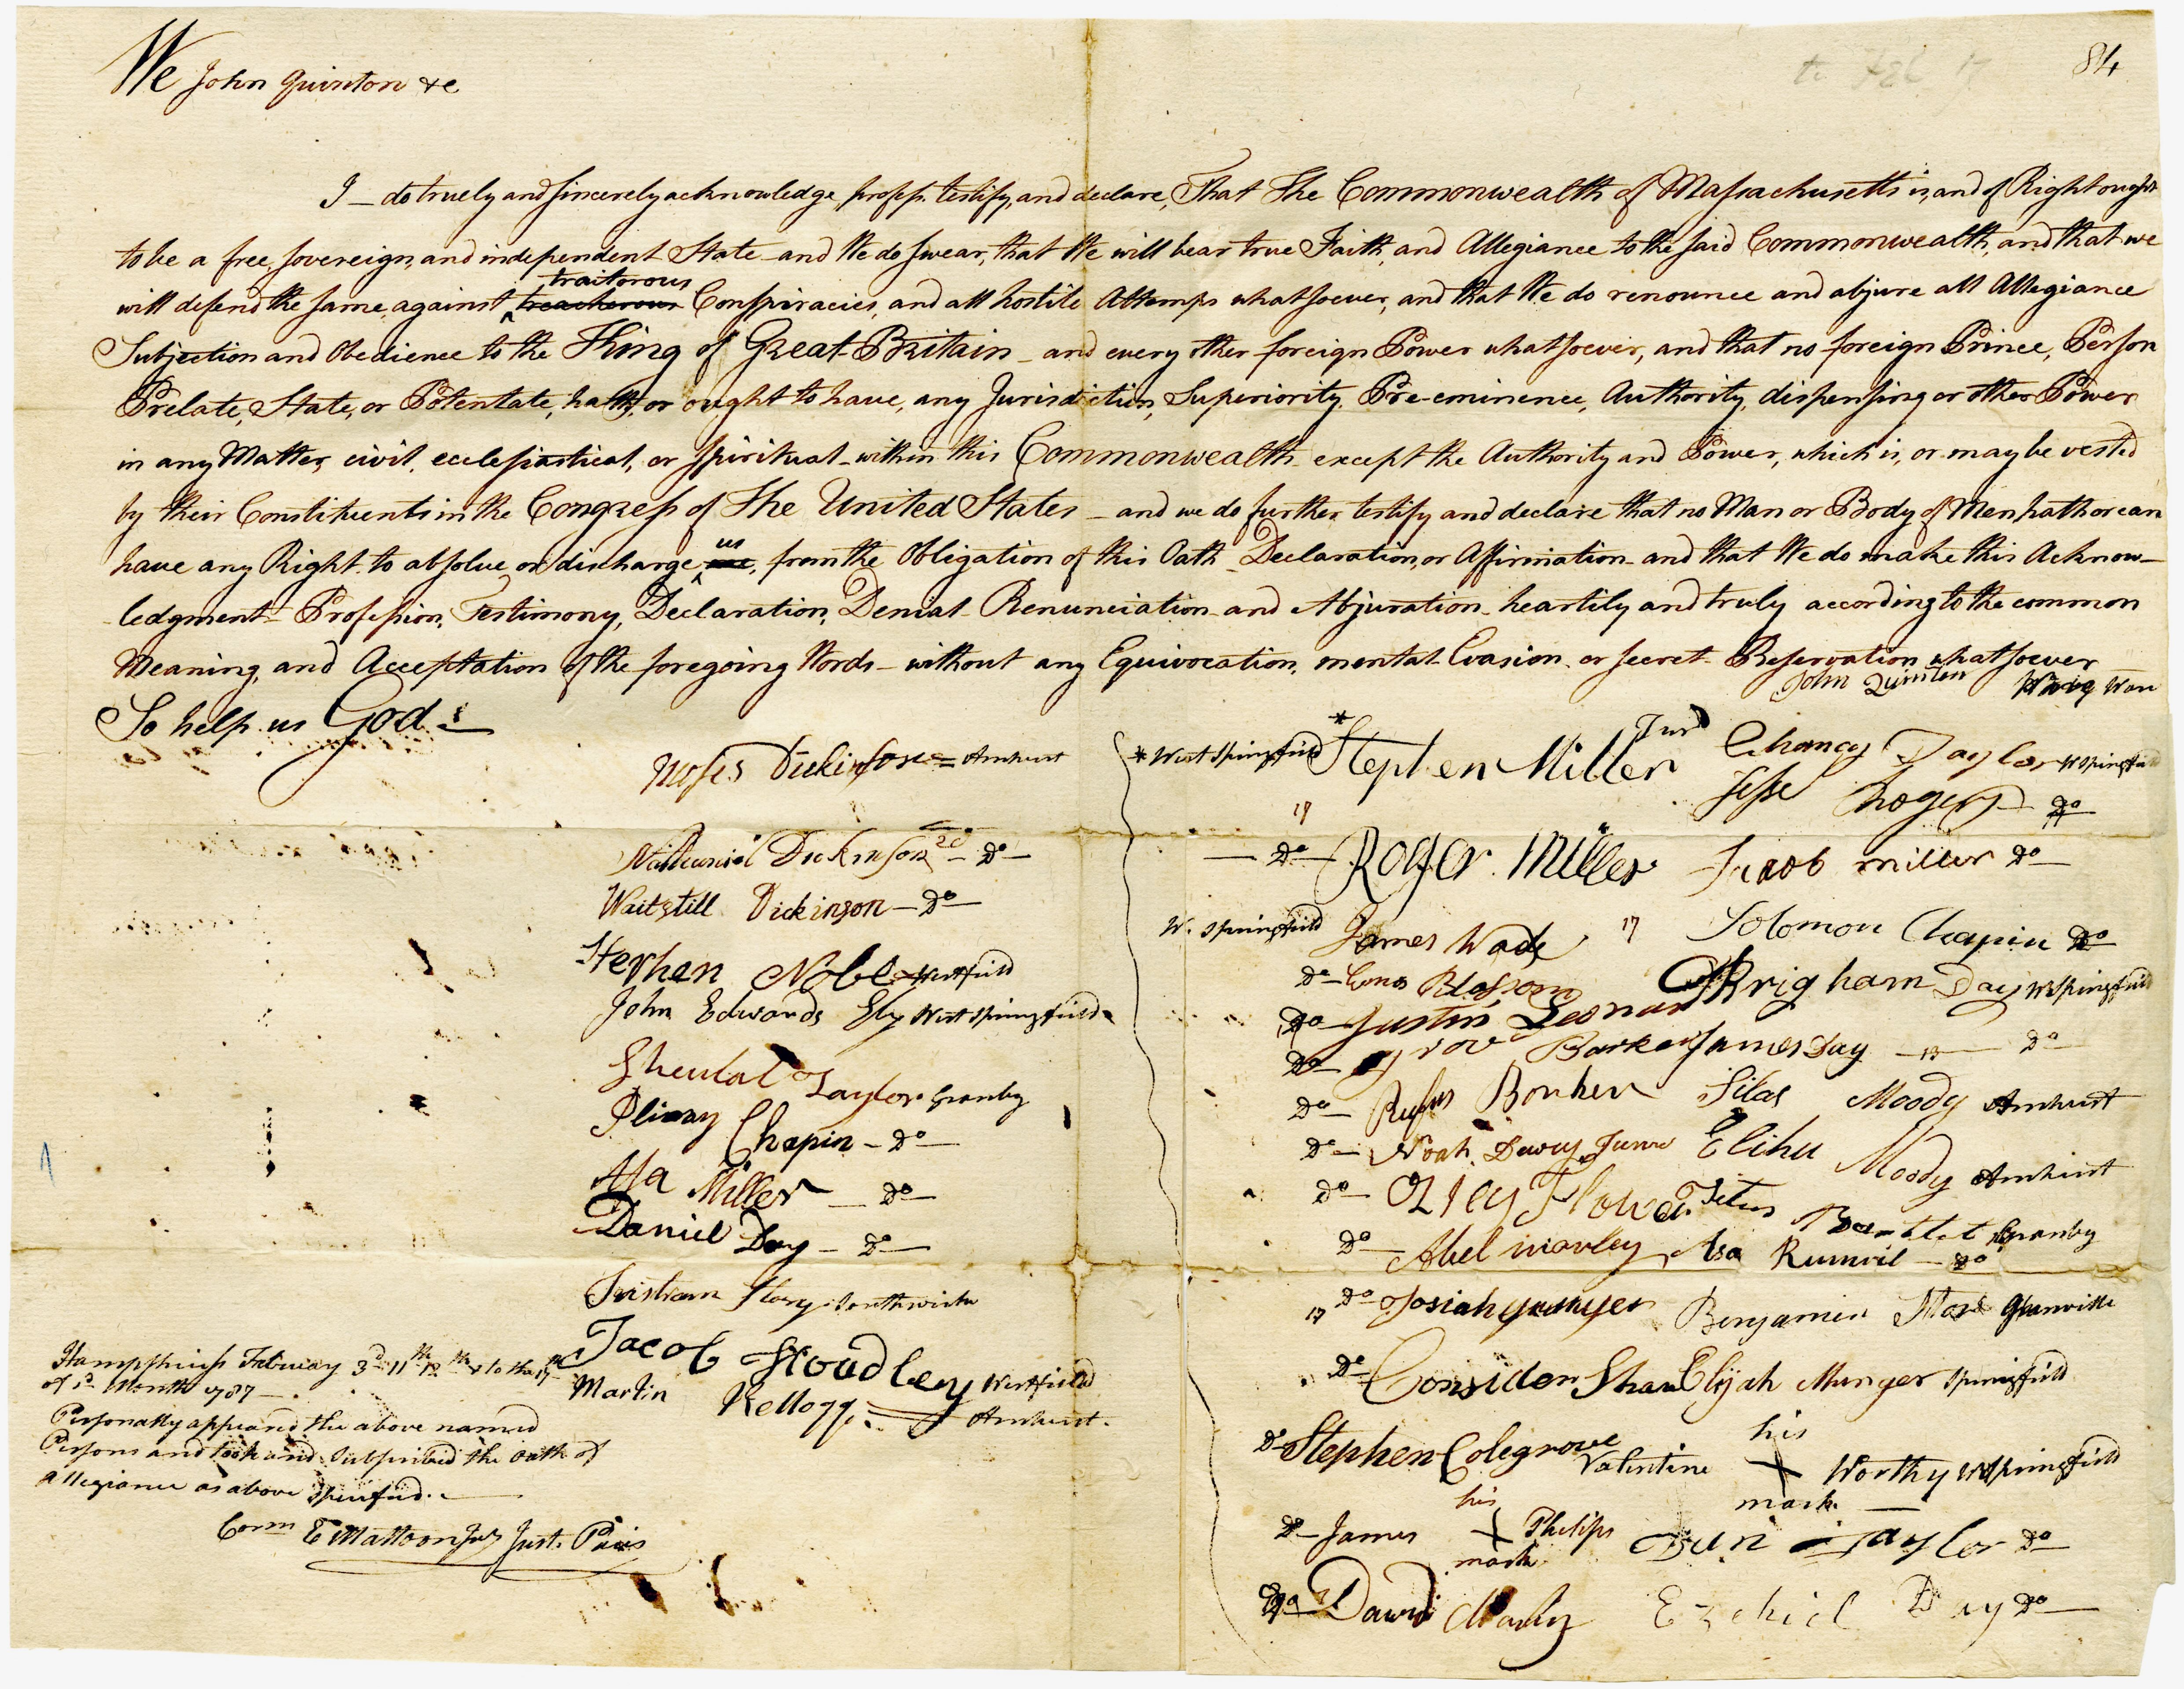 84
We John Quinton &c
I – do truely and sincerely acknowledge, profess, testify, and declare, That The Commonwealth of Massachusetts is, and of Right ought
to be a free, sovereign, and independent State – and We do swear, that We will bear true Faith, and Allegiance to the said Commonwealth, and that we
traitorous
will defend the same, against treacherous Conspiracies, and all hostile Attemps whatsoever, and that We do renounce and abjure all Allegiance
Subjection and Obedience to the King of Great Britain – and every other foreign Power whatsoever, and that no foreign Prince, Person
Prelate, State, or Potentate, hath, or ought to have, any Jurisdiction, Superiority, Pre-eminence, Authority, dispensing or other Power
in any Matter, civil, ecclesiastical, or spiritual – within this Commonwealth – except the Authority and Power, which is, or may be vested
by their Constituents in the Congress of The United States – and we do further testify and declare that no Man or Body of Men hath or can
us
have any Right to absolve or discharge me, from the Obligation of this Oath – Declaration, or Affirmation – and that We do make this Acknow–
ledgment – Profession, Testimony, Declaration, Denial – Renunciation – and Abjuration – heartily and truly according to the common
Meaning, and Acceptation of the foregoing Words – without any Equivocation, mental Evasion, or secret Reservation whatsoever
So help us God –
Moses Dickinson = Amherst
Nathaniel Dickinson 2d – Do –
Waitstill Dickinson – Do –
Stephen Noble Westfield
John Edwards Ely West Springfield
Taylor Granby
Chapin – Do –
Asa Miller – Do –
Daniel Day – Do –
Story Southwick
Jacob Westfield
Martin Kellogg Amherst
Hampshire ss February 3d 11th to the 17th
of sd Month 1787 –
Personally appeared the above named
Persons and took and subscribed the oath of
Allegiance as above specified. –
Corm E Mattoon Just. Pacis
John Quinton
* West Springfield * Stephen Miller
Chancy Taylor W Springfield
Jesse Do
17
– Do – Roger Miller
Jacob miller Do –
W. Springfield James Wade
17 Solomon Chapin Do –
Do – Blossom
Brigham Day W Springfield
Do – Justin Leonard
Do – Barker
James Day – 13 – Do –
Do – Rufus
Silas Moody Amherst
Do – Noah Dewey Junr
Elihu Moody Amherst
Do – Flower
Titus Granby
Do – Abel
Asa – Do
17 Do – Josiah
Benjamin Granville
Do – Consider Shaw
Elijah Munger Springfield
Do – Stephen Colegrove
his
Valentine X Worthy W Springfield
mark –
his
Do – James X Philips
mark
Dan Taylor Do –
Do – David
Ezekiel Day Do –